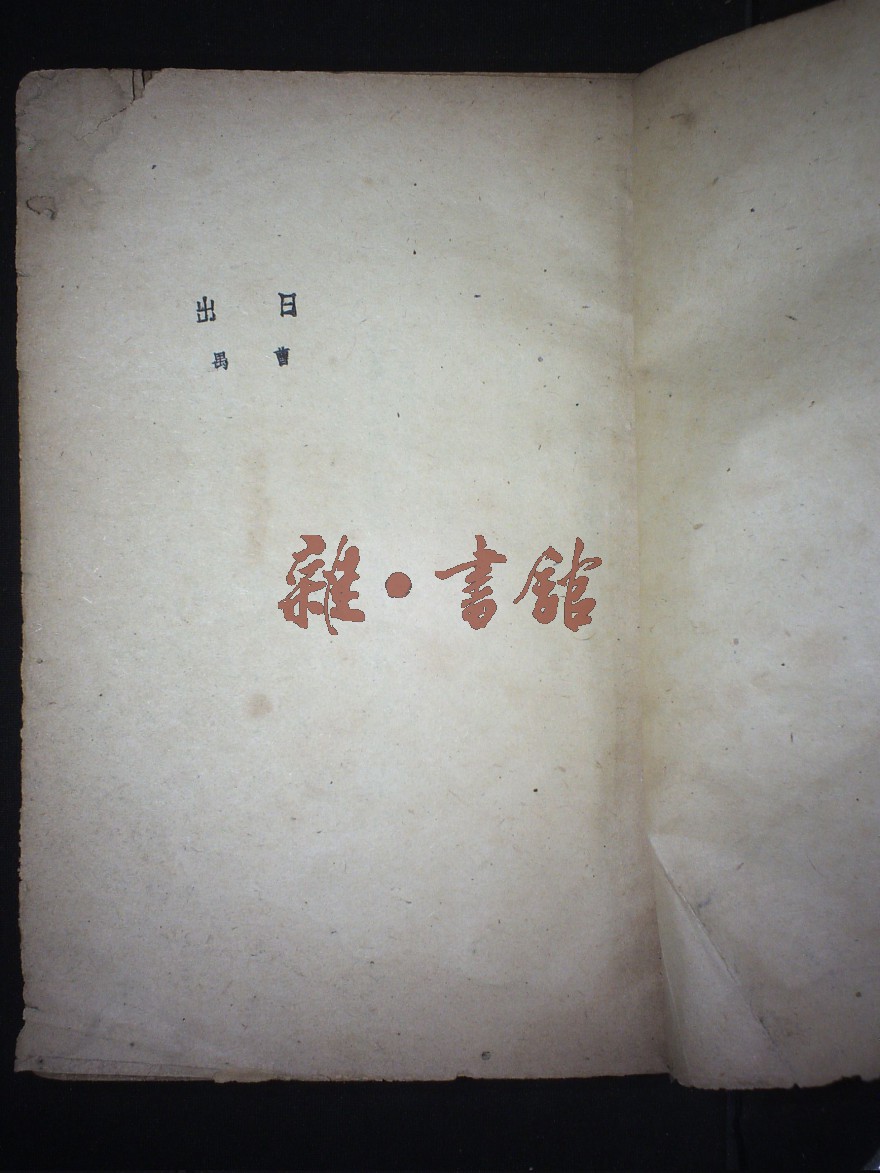 日出
曹禺
雜·書館